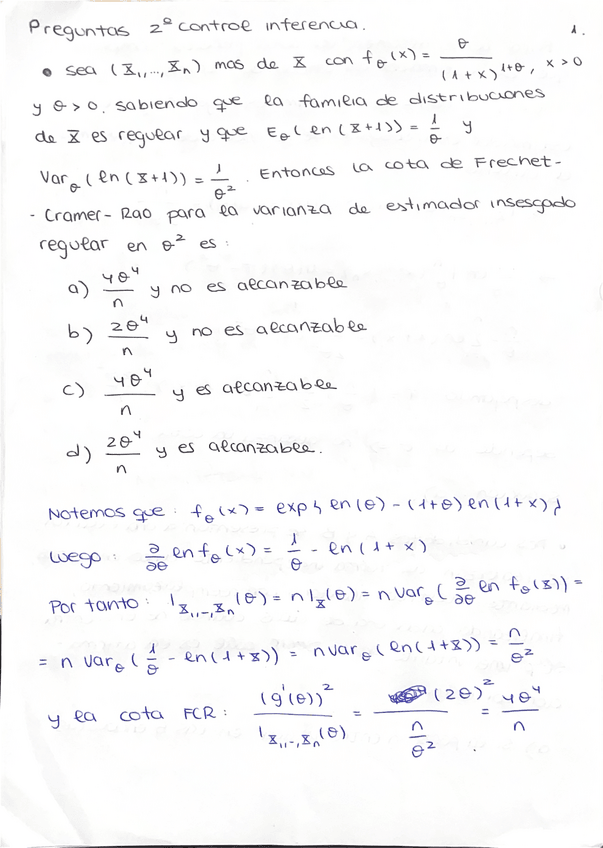 Preguntas 2º control inferencia. 1.
• sea (X₁,...,Xₙ) mas de X con f_θ(x) = θ / (1+x)^(1+θ), x>0
y θ>0. sabiendo que la familia de distribuciones
de X es regular y que E_θ(ln(X+1)) = 1/θ y
Var_θ(ln(X+1)) = 1/θ². Entonces la cota de Frechet-
- Cramer-Rao para la varianza de estimador insesgado
regular en θ² es:
a) 4θ⁴/n y no es alcanzable
b) 2θ⁴/n y no es alcanzable
c) 4θ⁴/n y es alcanzable
d) 2θ⁴/n y es alcanzable.
Notemos que: f_θ(x) = exp{ln(θ) - (1+θ)ln(1+x)}
luego: ∂/∂θ ln f_θ(x) = 1/θ - ln(1+x)
Por tanto: I_X₁,..,Xₙ(θ) = n I_X(θ) = n Var_θ(∂/∂θ ln f_θ(X)) =
= n Var_θ(1/θ - ln(1+X)) = n Var_θ(ln(1+X)) = n/θ²
y la cota FCR: (g'(θ))² / I_X₁,..,Xₙ(θ) = (2θ)² / (n/θ²) = 4θ⁴/n